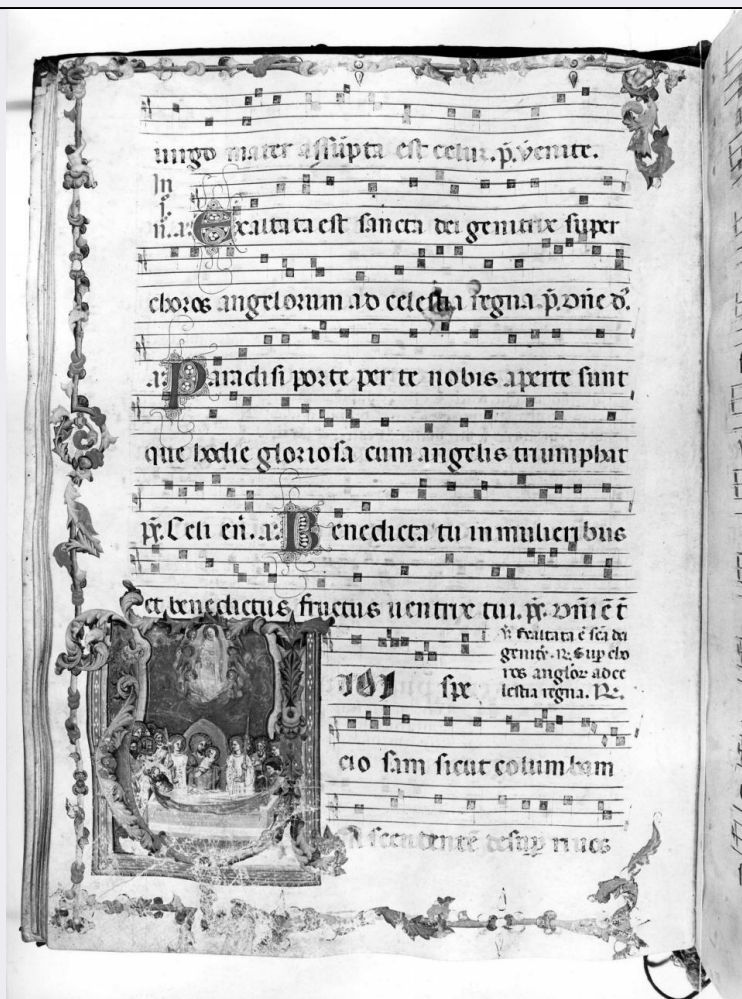 uirgo mater assūpta est celū. p̄. Venite.
In
j.
n̄. a. Exaltata est sancta dei genitrix super
choros angelorum ad celestia regna. p̄. dn̄e d̄.
a. Paradisi porte per te nobis aperte sunt
que hodie gloriosa cum angelis triumphat
p̄. Celi en̄. a. Benedicta tu in mulieribus
et benedictus fructus uentris tui. p̄.
v̄. Exaltata ē sc̄a dei
genitx. R. Sup cho
ros anglor ad ce
lestia regna. R.
Vidi spe
cio sam sicut columbam
ascendentē desup riuos